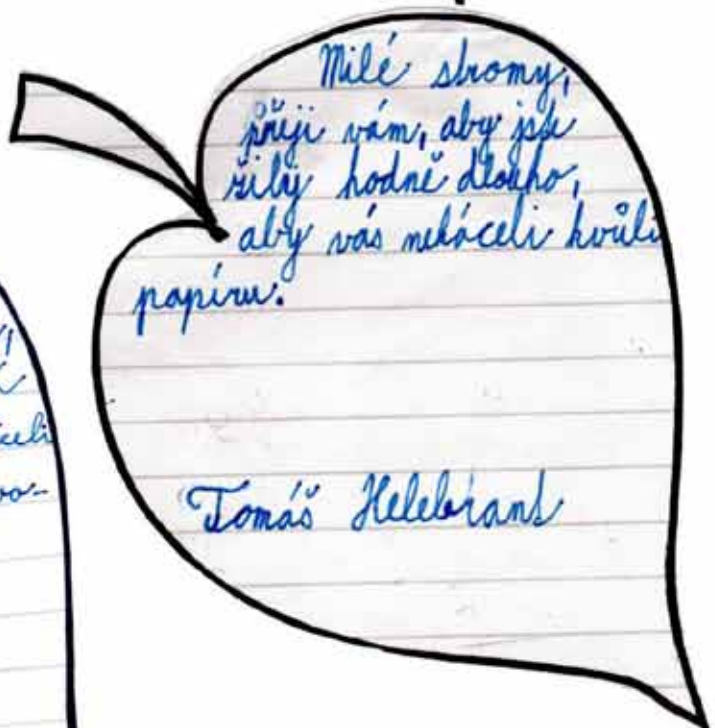 Milé stromy,
přeji vám, aby jste
žily hodně dlouho,
aby vás nekáceli kvůli
papíru.
Tomáš Helebrant